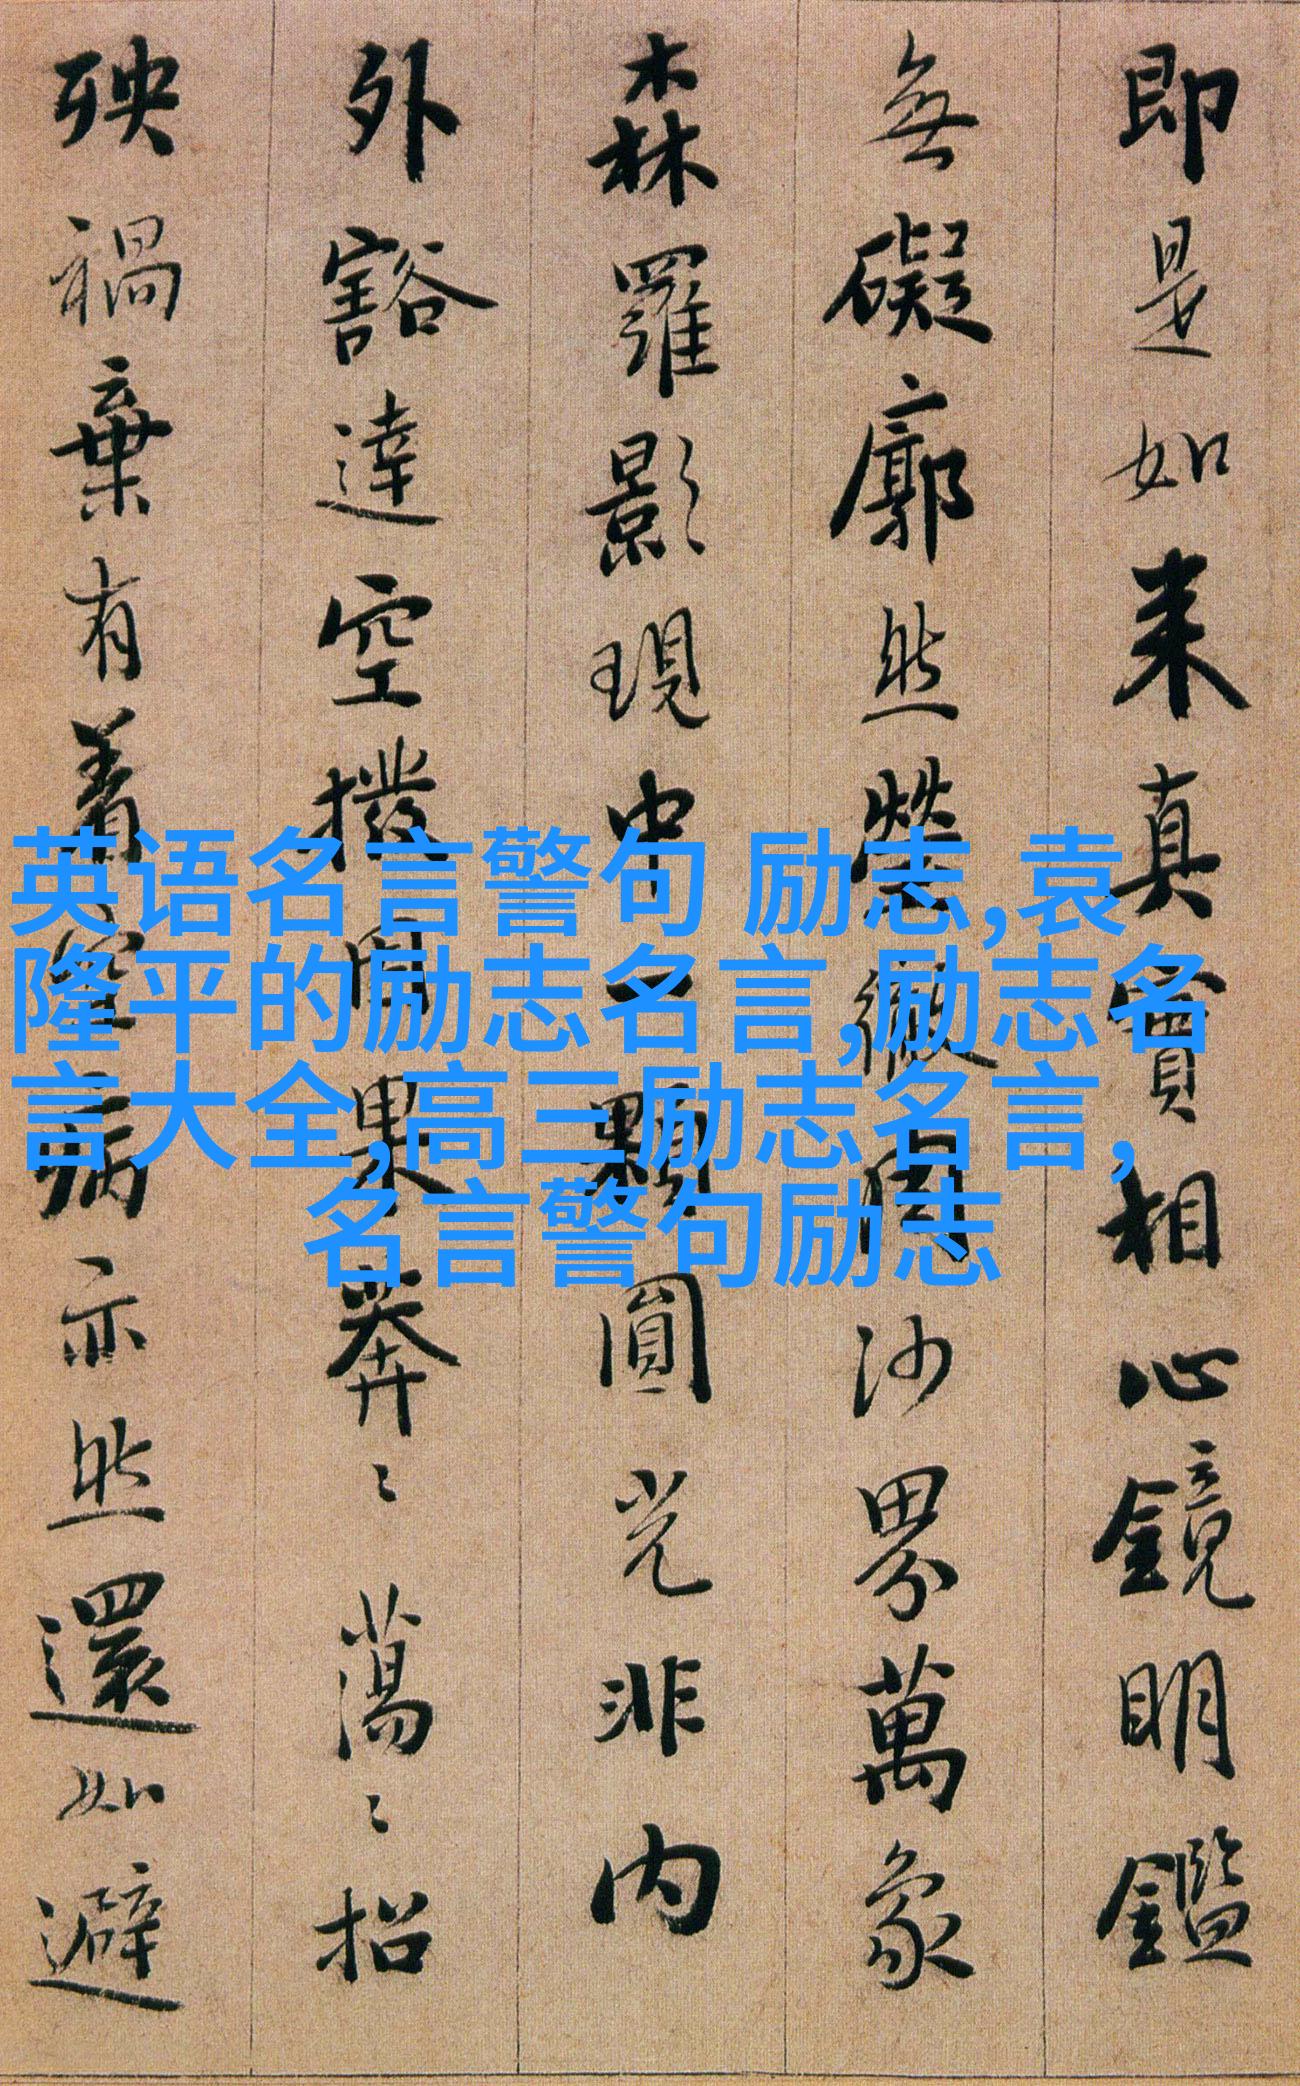 即是如来真實相心鏡明鑑
無礙廓然瑩徹周沙界萬象
森羅影現中一顆圓光非内
外豁達空撥因果莽〻蕩〻招
殃禍棄有著空病亦然還如避
英语名言警句 励志,袁
隆平的励志名言,励志名
言大全,高三励志名言,
名言警句励志